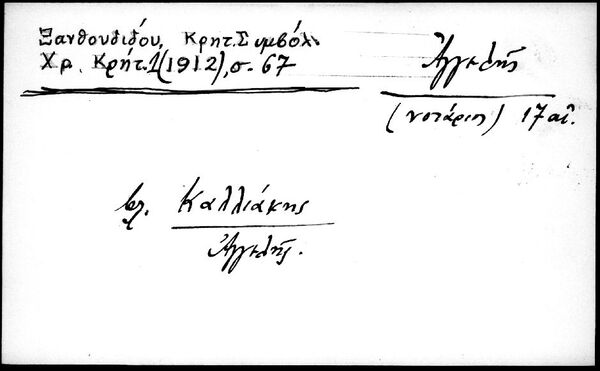 Ξανθουδίδου, Κρητ. Συμβόλ.
Χρ. Κρήτ. 1 (1912), σ. 67
Ἀγγελῆς
(νοτάριος) 17 αἰ.
βλ. Καλλιάκης
Ἀγγελῆς.